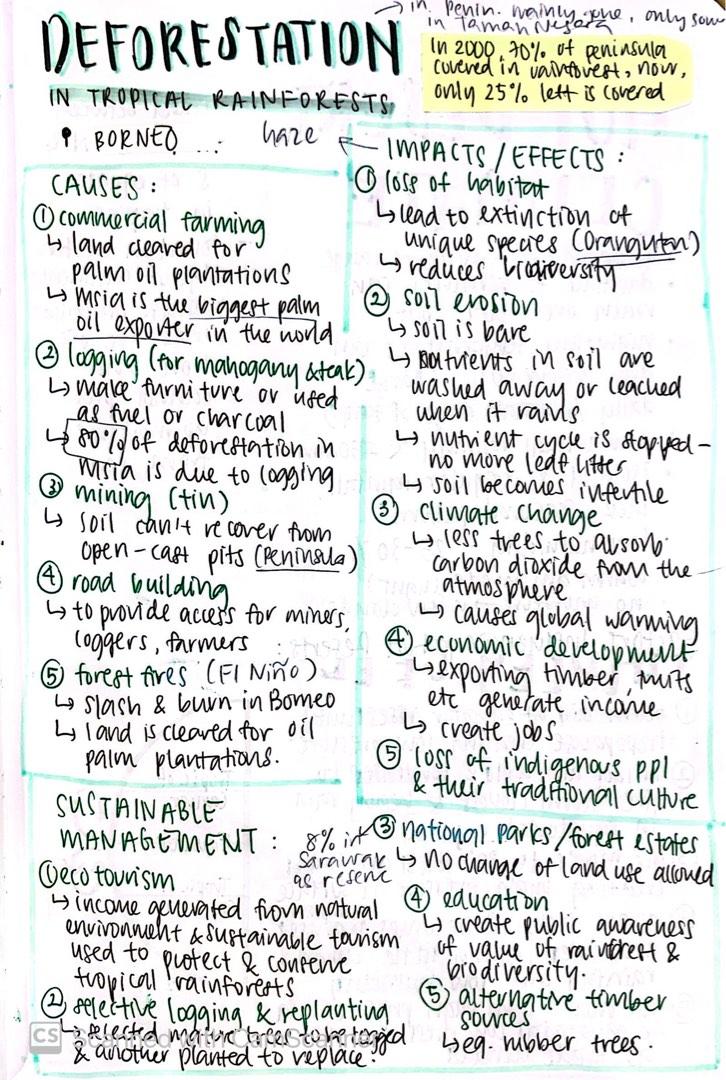 → in Penin. mainly gone, only some
in Taman Negara
DEFORESTATION
IN TROPICAL RAINFORESTS
In 2000, 70% of peninsula
covered in rainforest, now,
only 25% left is covered
BORNEO ...:
haze ←
CAUSES:
① commercial farming
↳ land cleared for
palm oil plantations
↳ Msia is the biggest palm
oil exporter in the world
② logging (for mahogany & teak)
↳ make furniture or used
as fuel or charcoal
↳ 80% of deforestation in
Msia is due to logging
③ mining (tin)
↳ soil can't recover from
open-cast pits (Peninsula)
④ road building
↳ to provide access for miners,
loggers, farmers
⑤ forest fires (El Niño)
↳ slash & burn in Borneo
↳ land is cleared for oil
palm plantations.
IMPACTS / EFFECTS:
① loss of habitat
↳ lead to extinction of
unique species (Orangutan)
↳ reduces biodiversity
② soil erosion
↳ soil is bare
↳ nutrients in soil are
washed away or leached
when it rains
↳ nutrient cycle is stopped –
no more leaf litter
↳ soil becomes infertile
③ climate change
↳ less trees to absorb
carbon dioxide from the
atmosphere
↳ causes global warming
④ economic development
↳ exporting timber, fruits
etc generate income
↳ create jobs
⑤ loss of indigenous ppl
& their traditional culture
SUSTAINABLE
MANAGEMENT:
① ecotourism
↳ income generated from natural
environment & sustainable tourism
used to protect & conserve
tropical rainforests
② selective logging & replanting
↳ selected mature trees to be logged
& another planted to replace.
8% in
Sarawak
as reserve
③ national parks / forest estates
↳ no change of land use allowed
④ education
↳ create public awareness
of value of rainforest &
biodiversity.
⑤ alternative timber
sources
↳ eg. rubber trees.
CS Scanned with CamScanner